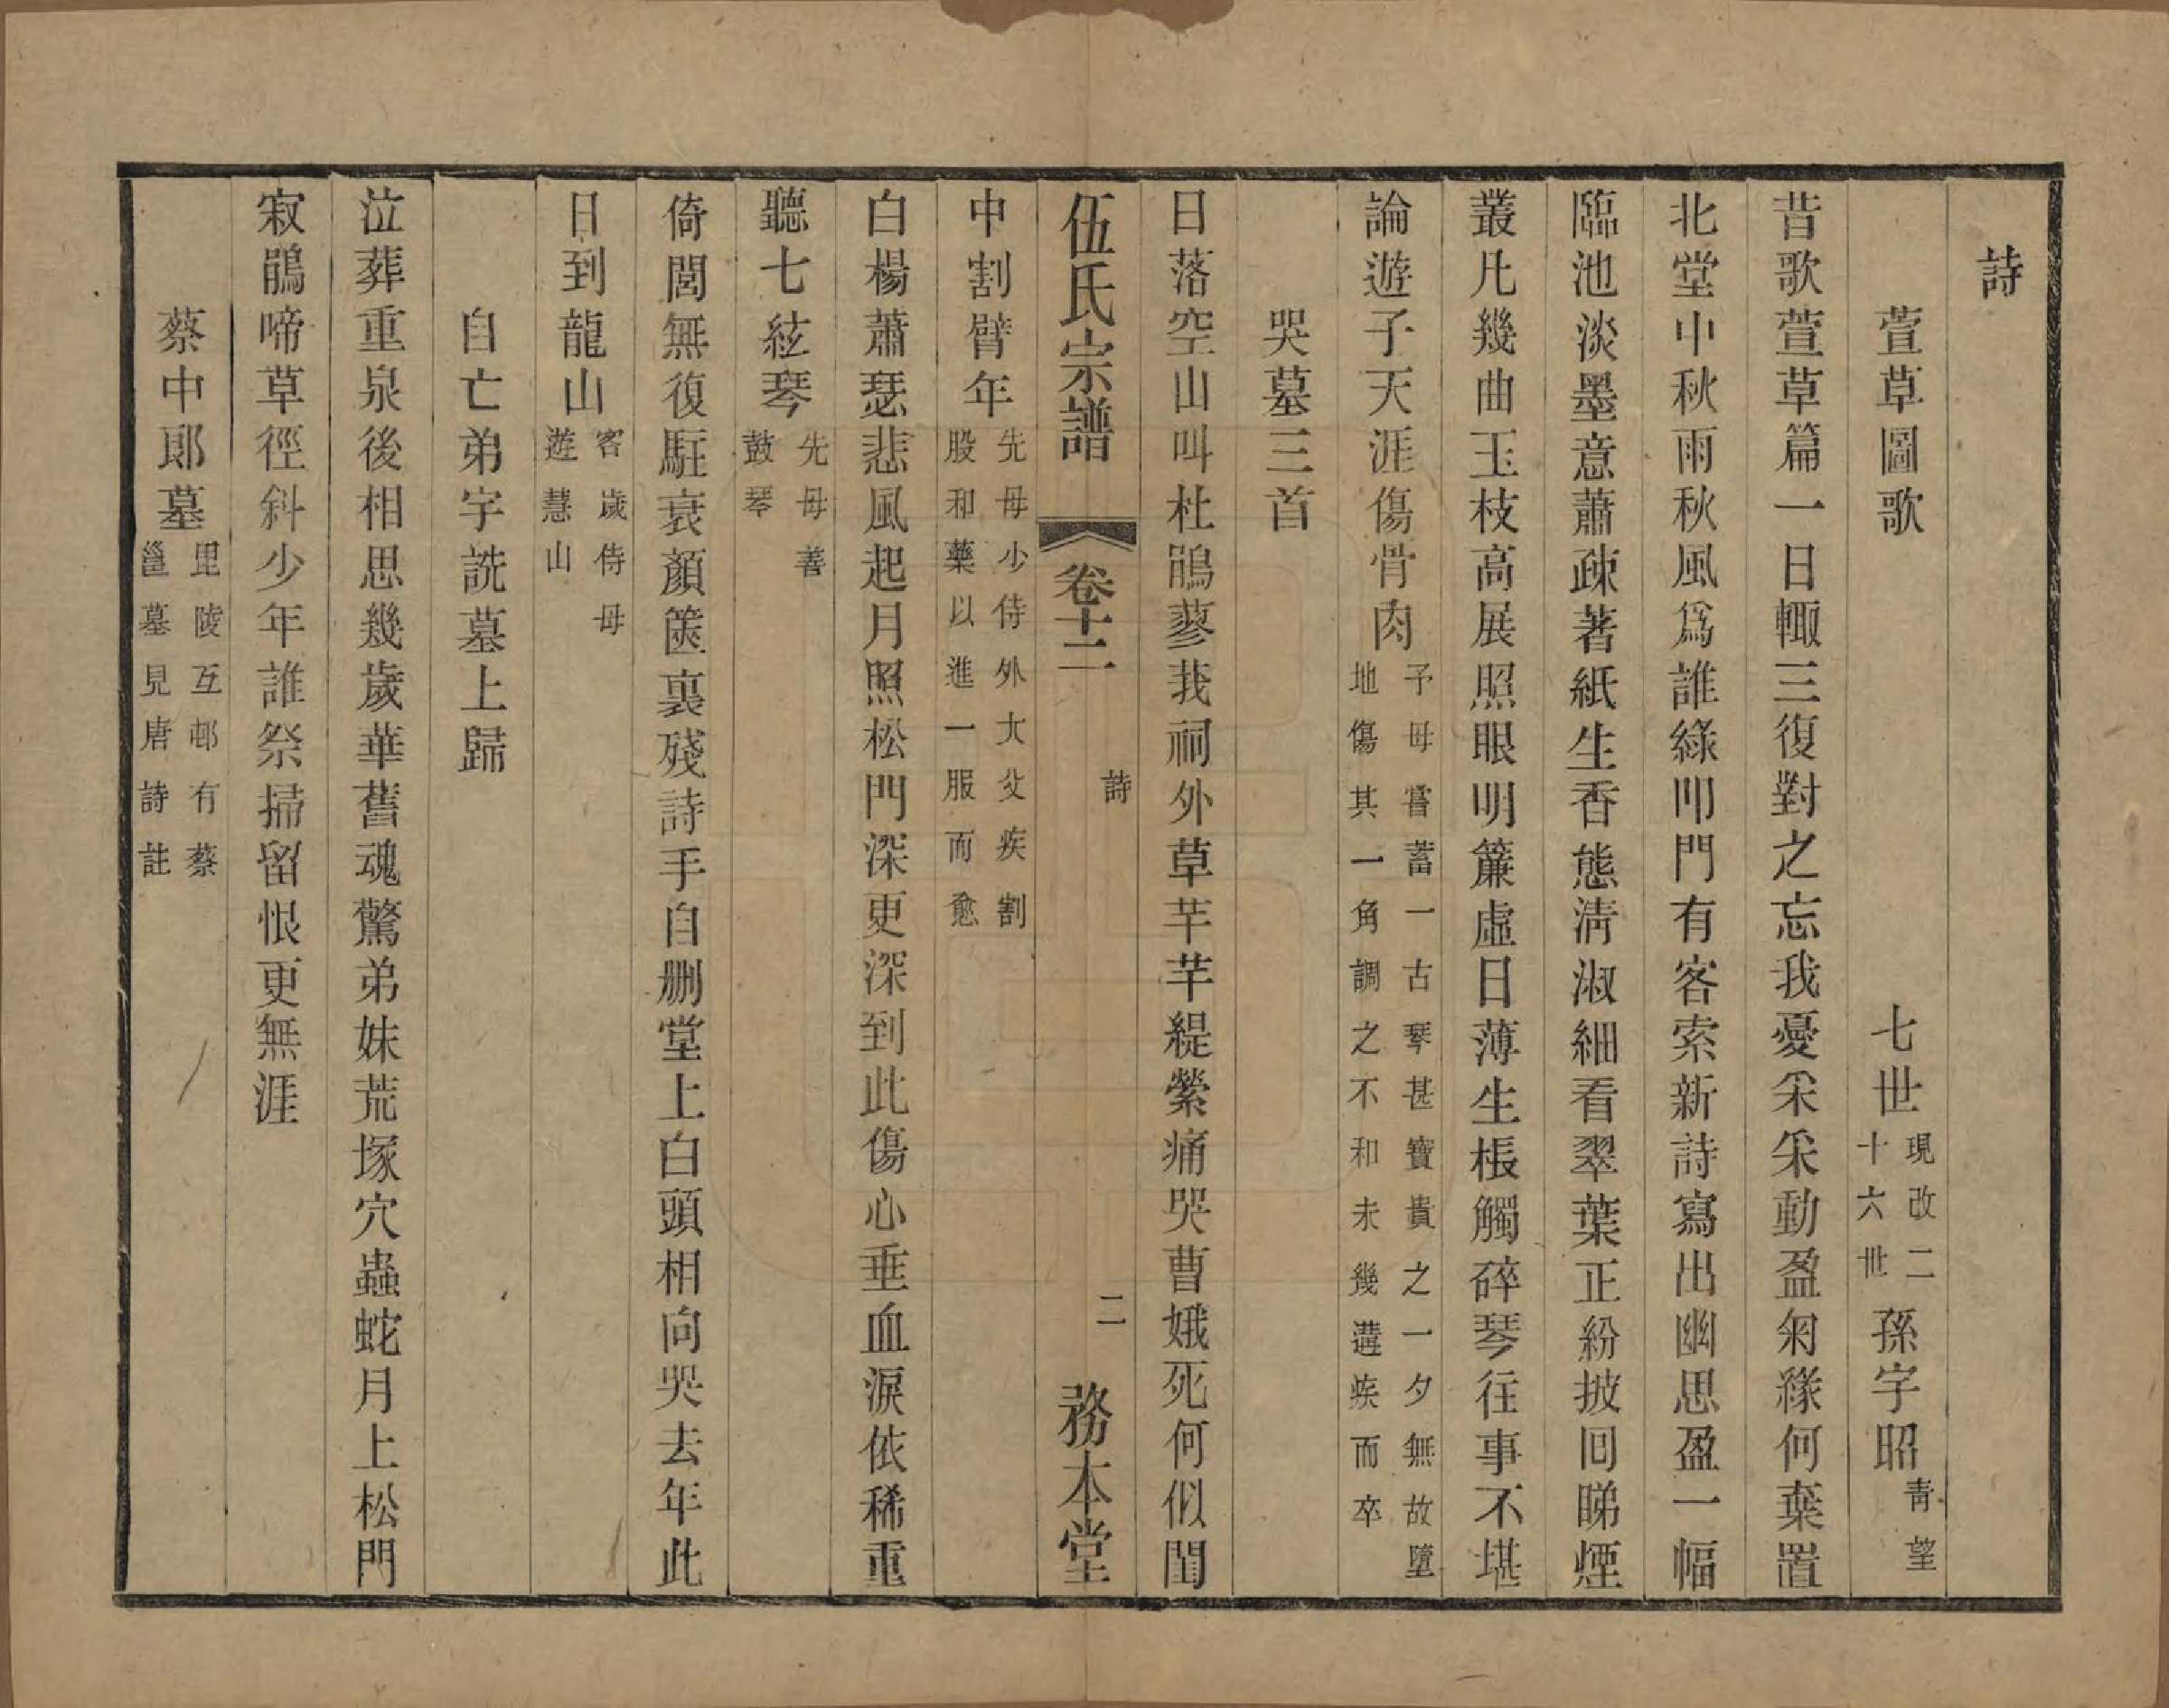 詩
萱草圖歌　七世現改二十六世孫字昭青望
昔歌萱草篇一日輙三復對之忘我憂采采動盈匊緣何棄置
北堂中秋雨秋風爲誰綠叩門有客索新詩寫出幽思盈一幅
臨池淡墨意蕭疎著紙生香態淸淑細看翠葉正紛披回睇煙
叢凡幾曲玉枝高展照眼明簾虛日薄生棖觸碎琴往事不堪
論遊子天涯傷骨肉予母嘗蓄一古琴甚寶貴之一夕無故墮地傷其一角調之不和未幾遘疾而卒
哭墓三首
日落空山叫杜鵑蓼莪祠外草芊芊緹縈痛哭曹娥死何似閨
伍氏宗譜　卷十二　詩　二　務本堂
中割臂年先母少侍外大父疾割股和藥以進一服而愈
白楊蕭瑟悲風起月照松門深更深到此傷心垂血淚依稀重
聽七絃琴先母善鼓琴
倚閭無復駐衰顏篋裏殘詩手自删堂上白頭相向哭去年此
日到龍山客歲侍母遊慧山
自亡弟宇詵墓上歸
泣葬重泉後相思幾歲華舊魂驚弟妹荒塚穴蟲蛇月上松門
寂鵑啼草徑斜少年誰祭掃留恨更無涯
蔡中郞墓毘陵互邨有蔡邕墓見唐詩註